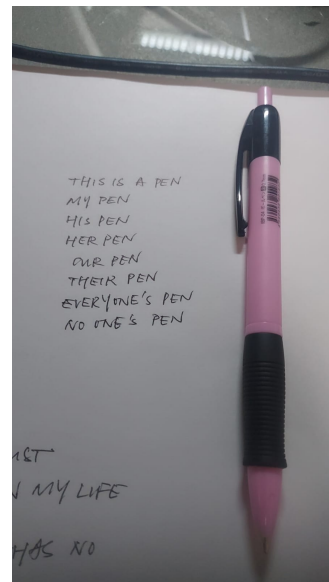 THIS IS A PEN
MY PEN
HIS PEN
HER PEN
OUR PEN
THEIR PEN
EVERYONE'S PEN
NO ONE'S PEN
MY LIFE
HAS NO